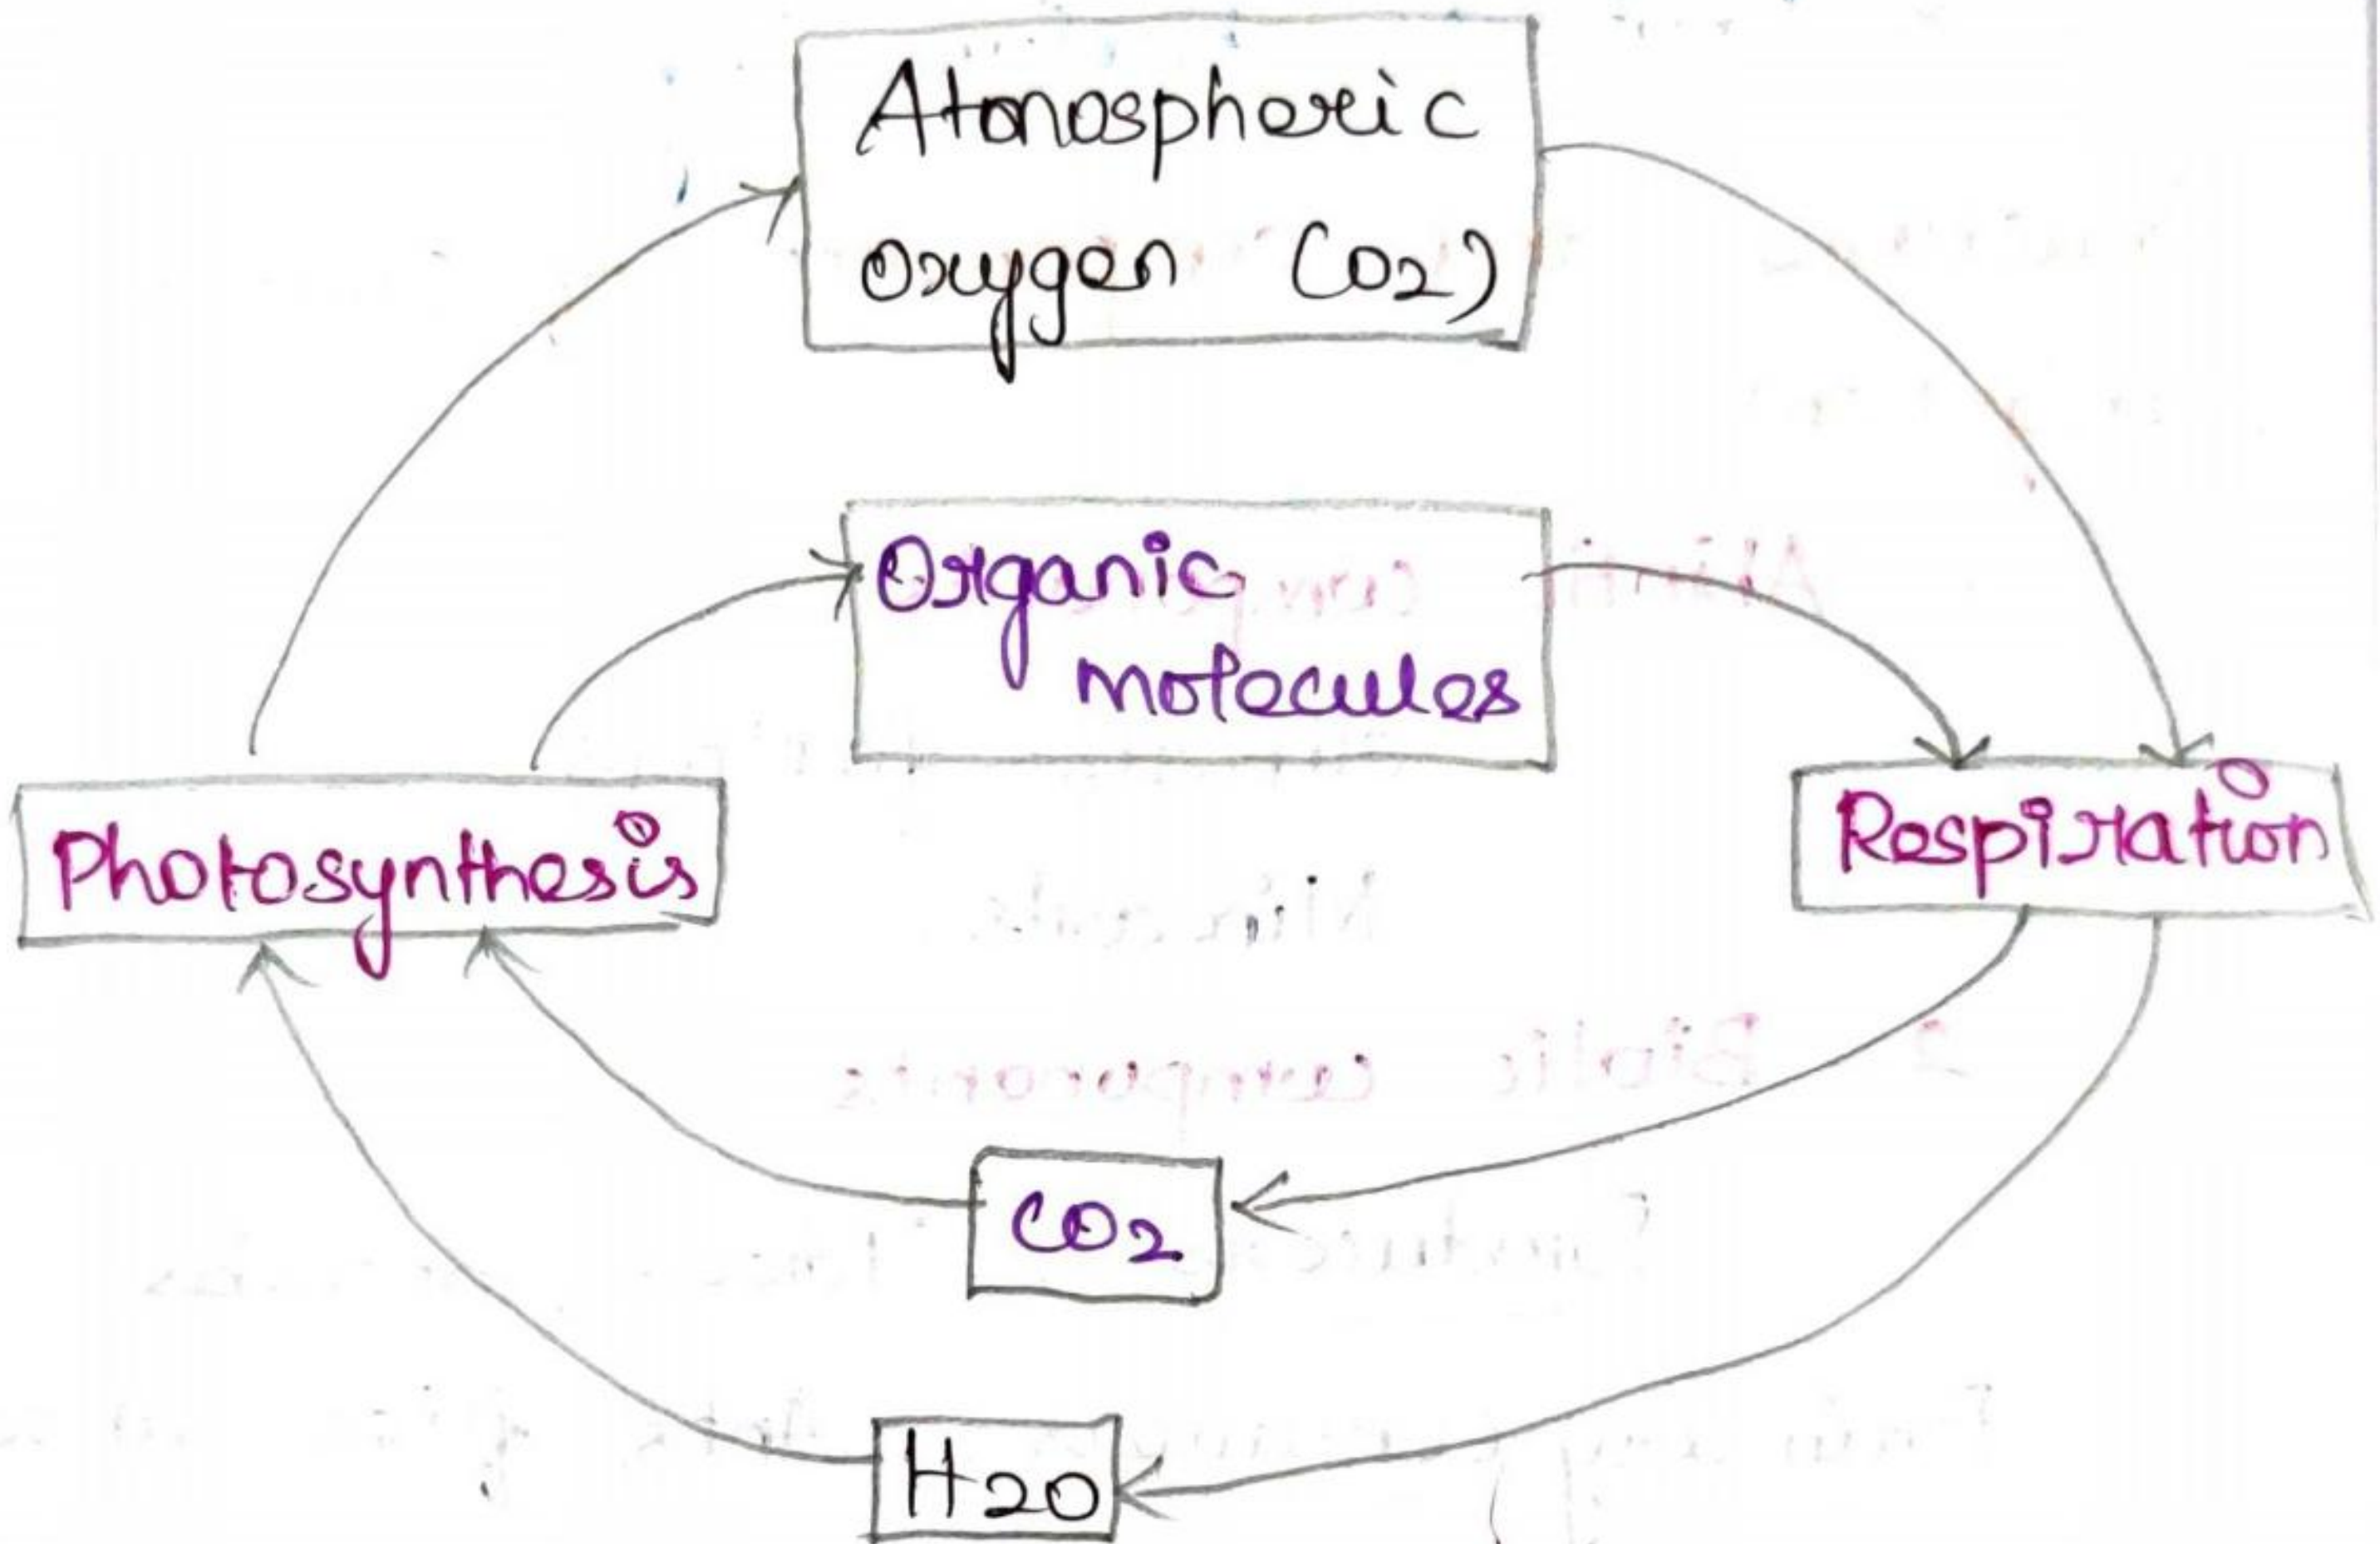 Atmospheric
Oxygen (O2)
Organic
molecules
Photosynthesis
Respiration
CO2
H2O